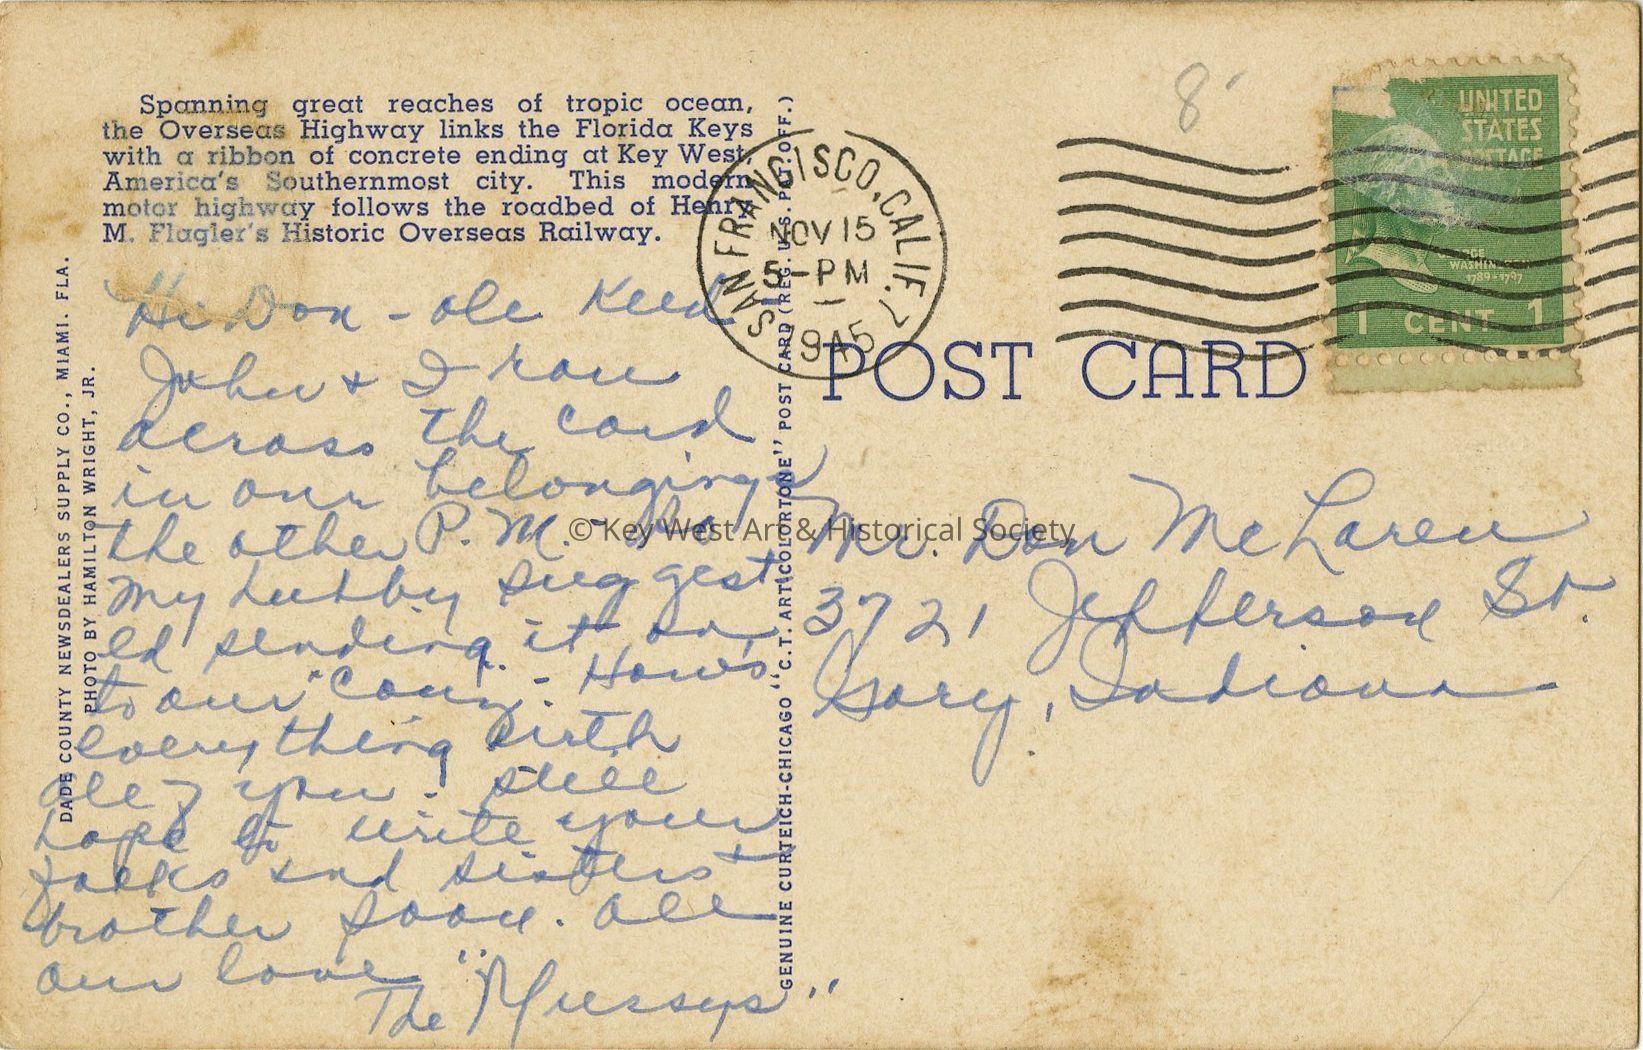 Spanning great reaches of tropic ocean,
the Overseas Highway links the Florida Keys
with a ribbon of concrete ending at Key West,
America's Southernmost city. This modern
motor highway follows the roadbed of Henry
M. Flagler's Historic Overseas Railway.
Hi Don - ole Keed
John & I ran
across the card
in our belongings
the other P.M. - So
my hubby suggest
ed sending it on
to our "Couz". How's
everything with
all of you. Still
hope to write your
folks and sisters &
brother soon. All
our love
The "Mussys"
DADE COUNTY NEWSDEALERS SUPPLY CO., MIAMI. FLA.
PHOTO BY HAMILTON WRIGHT, JR.
GENUINE CURTEICH-CHICAGO "C.T. ART-COLORTONE" POST CARD (REG. U.S. PAT. OFF.)
SAN FRANCISCO, CALIF. 7
NOV 15
5-PM
1945
8
UNITED
STATES
POSTAGE
WASHINGTON
1789-1797
1 CENT 1
POST CARD
Mr. Don McLaren
3721 Jefferson St.
Gary, Indiana
© Key West Art & Historical Society